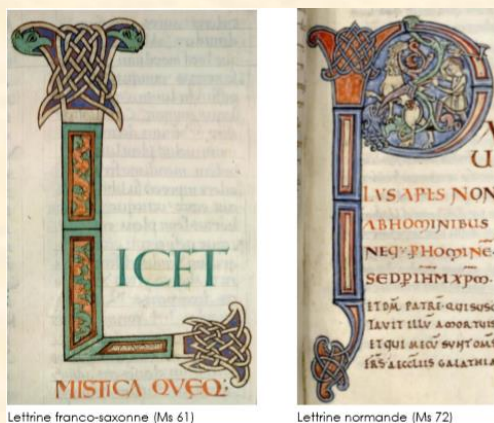 LICET
MISTICA QVEQ:
Lettrine franco-saxonne (Ms 61)
P
U
LVS APLS NON
ABHOMINIBUS
NEQ; P HOMINE
SED P IHM XPM.
ET DM PATRE QUI SUSC
TAVIT ILLV AMORTUIS
ET QUI MECU SVNT OMS
FRS AECCLIIS GALATHIA
Lettrine normande (Ms 72)